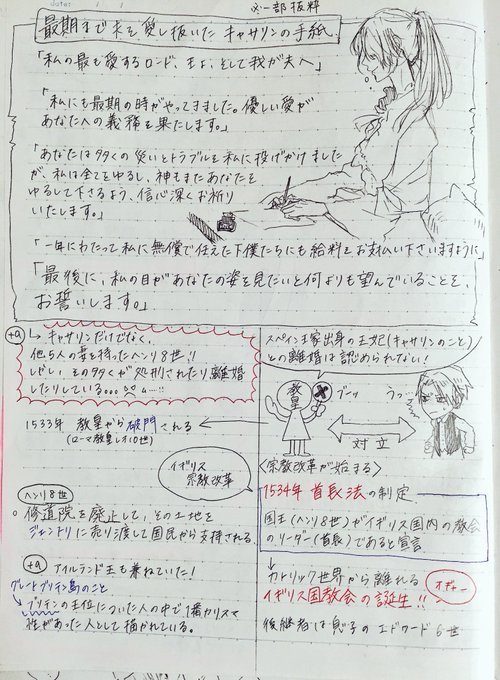 date:
※一部抜粋
最期まで夫を愛し抜いた キャサリンの手紙
「私の最も愛するロンド、王よ、そして我が夫へ」
「私にも最期の時がやってきました。優しい愛が
あなたへの義務を果たします。」
「あなたは多くの災いとトラブルを私に投げかけました
が、私は全てをゆるし、神もまたあなたを
ゆるして下さるよう、信心深くお祈り
いたします。」
「一年にわたって私に無償で仕えた下僕たちにも給料をお支払い下さいますように」
「最後に、私の目があなたの姿を見たいと何よりも望んでいることを、
お誓いします。」
+α
キャサリンだけでなく、
他5人の妻を持ったヘンリ8世!!
しかし、その多くが処刑されたり離婚
したりしている。。。
スペイン王家出身の王妃(キャサリンのこと)
との離婚は認められない!
教皇
ブーッ
うっ…
対立
1533年 教皇から破門される
(ローマ教皇レオ10世)
イギリス
宗教改革
〈宗教改革が始まる〉
1534年 首長法の制定
国王(ヘンリ8世)がイギリス国内の教会
のリーダー(首長)であると宣言
ヘンリ8世
修道院を廃止して、その土地を
ジェントリに売り渡して国民から支持される
+α
アイルランド王も兼ねていた!
グレートブリテン島のこと
ブリテンの王位についた人の中で1番カリスマ
性があった人として描かれている。
カトリック世界から離れる
イギリス国教会の誕生!!
オギャー
後継者は息子のエドワード6世